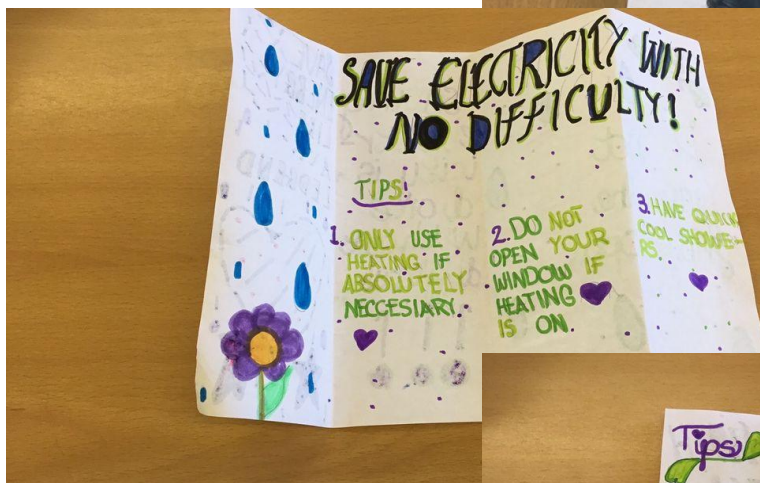 SAVE ELECTRICITY WITH
NO DIFFICULTY!
TIPS!
1. ONLY USE
HEATING IF
ABSOLUTELY
NECCESIARY.
2. DO NOT
OPEN YOUR
WINDOW IF
HEATING
IS ON.
3. HAVE QUICK
COOL SHOWE-
RS.
Tips